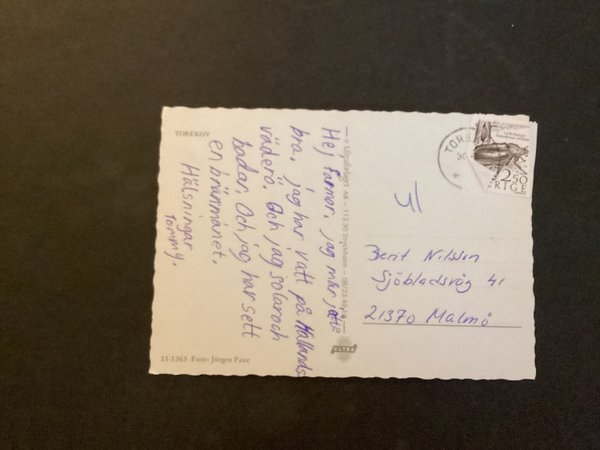 TOREKOV
Hej farmor, jag mår jätte
bra, jag har vatt på Hallands
väderö. Och jag solar och
badar. Och jag har sett
en brännmanet.
Hälsningar
Tommy.
11-1363 Foto: Jörgen Faxe
ULTRA
TORE
2.50
SVERIGE
Bent Nilsson
Sjöbladsväg 41
21370 Malmö